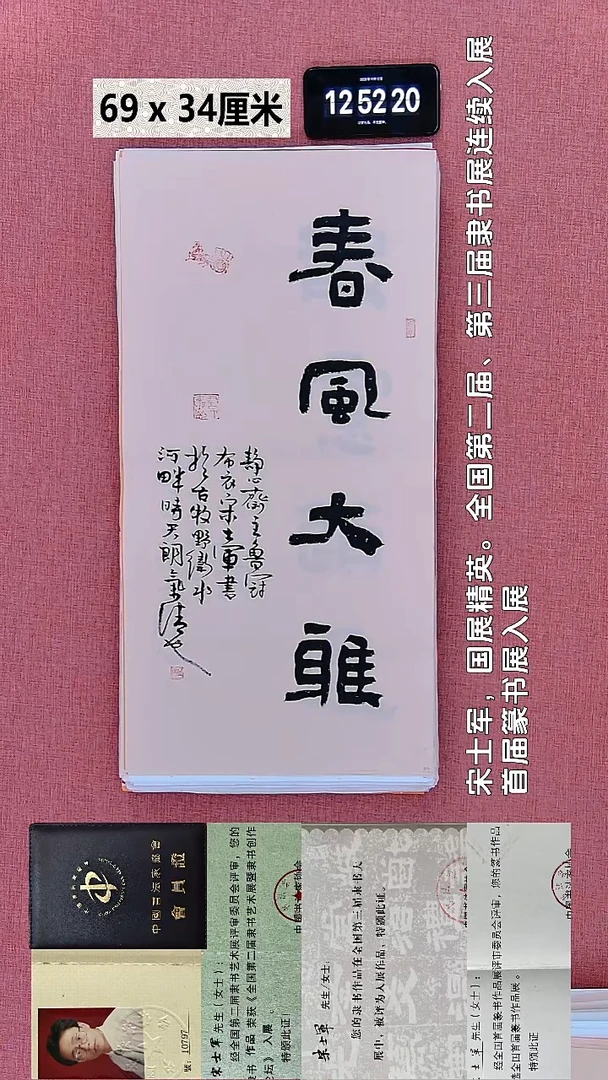 69 x 34厘米
12 52 20
春風大雅
静心斋主鲁寒
布衣宋士軍書
於古牧野衛水
河畔時天朗氣清也
宋士军，国展精英。全国第二届、第三届隶书展连续入展
首届篆书展入展
中國書法家協會
會員證
號：10797
宋士军 先生（女士）：
经全国第二届隶书艺术展评审委员会评审，您的
隶书 作品 荣获《全国第二届隶书艺术展暨隶书创作
论坛》 入展 。
特颁此证！
宋士军 先生/女士：
您的隶书作品在全国第三届隶书大
展中，被评为入展作品，特颁此证。
士军 先生（女士）：
经全国首届篆书作品展评审委员会评审，您的篆书作品
选全国首届篆书作品展。
特颁此证